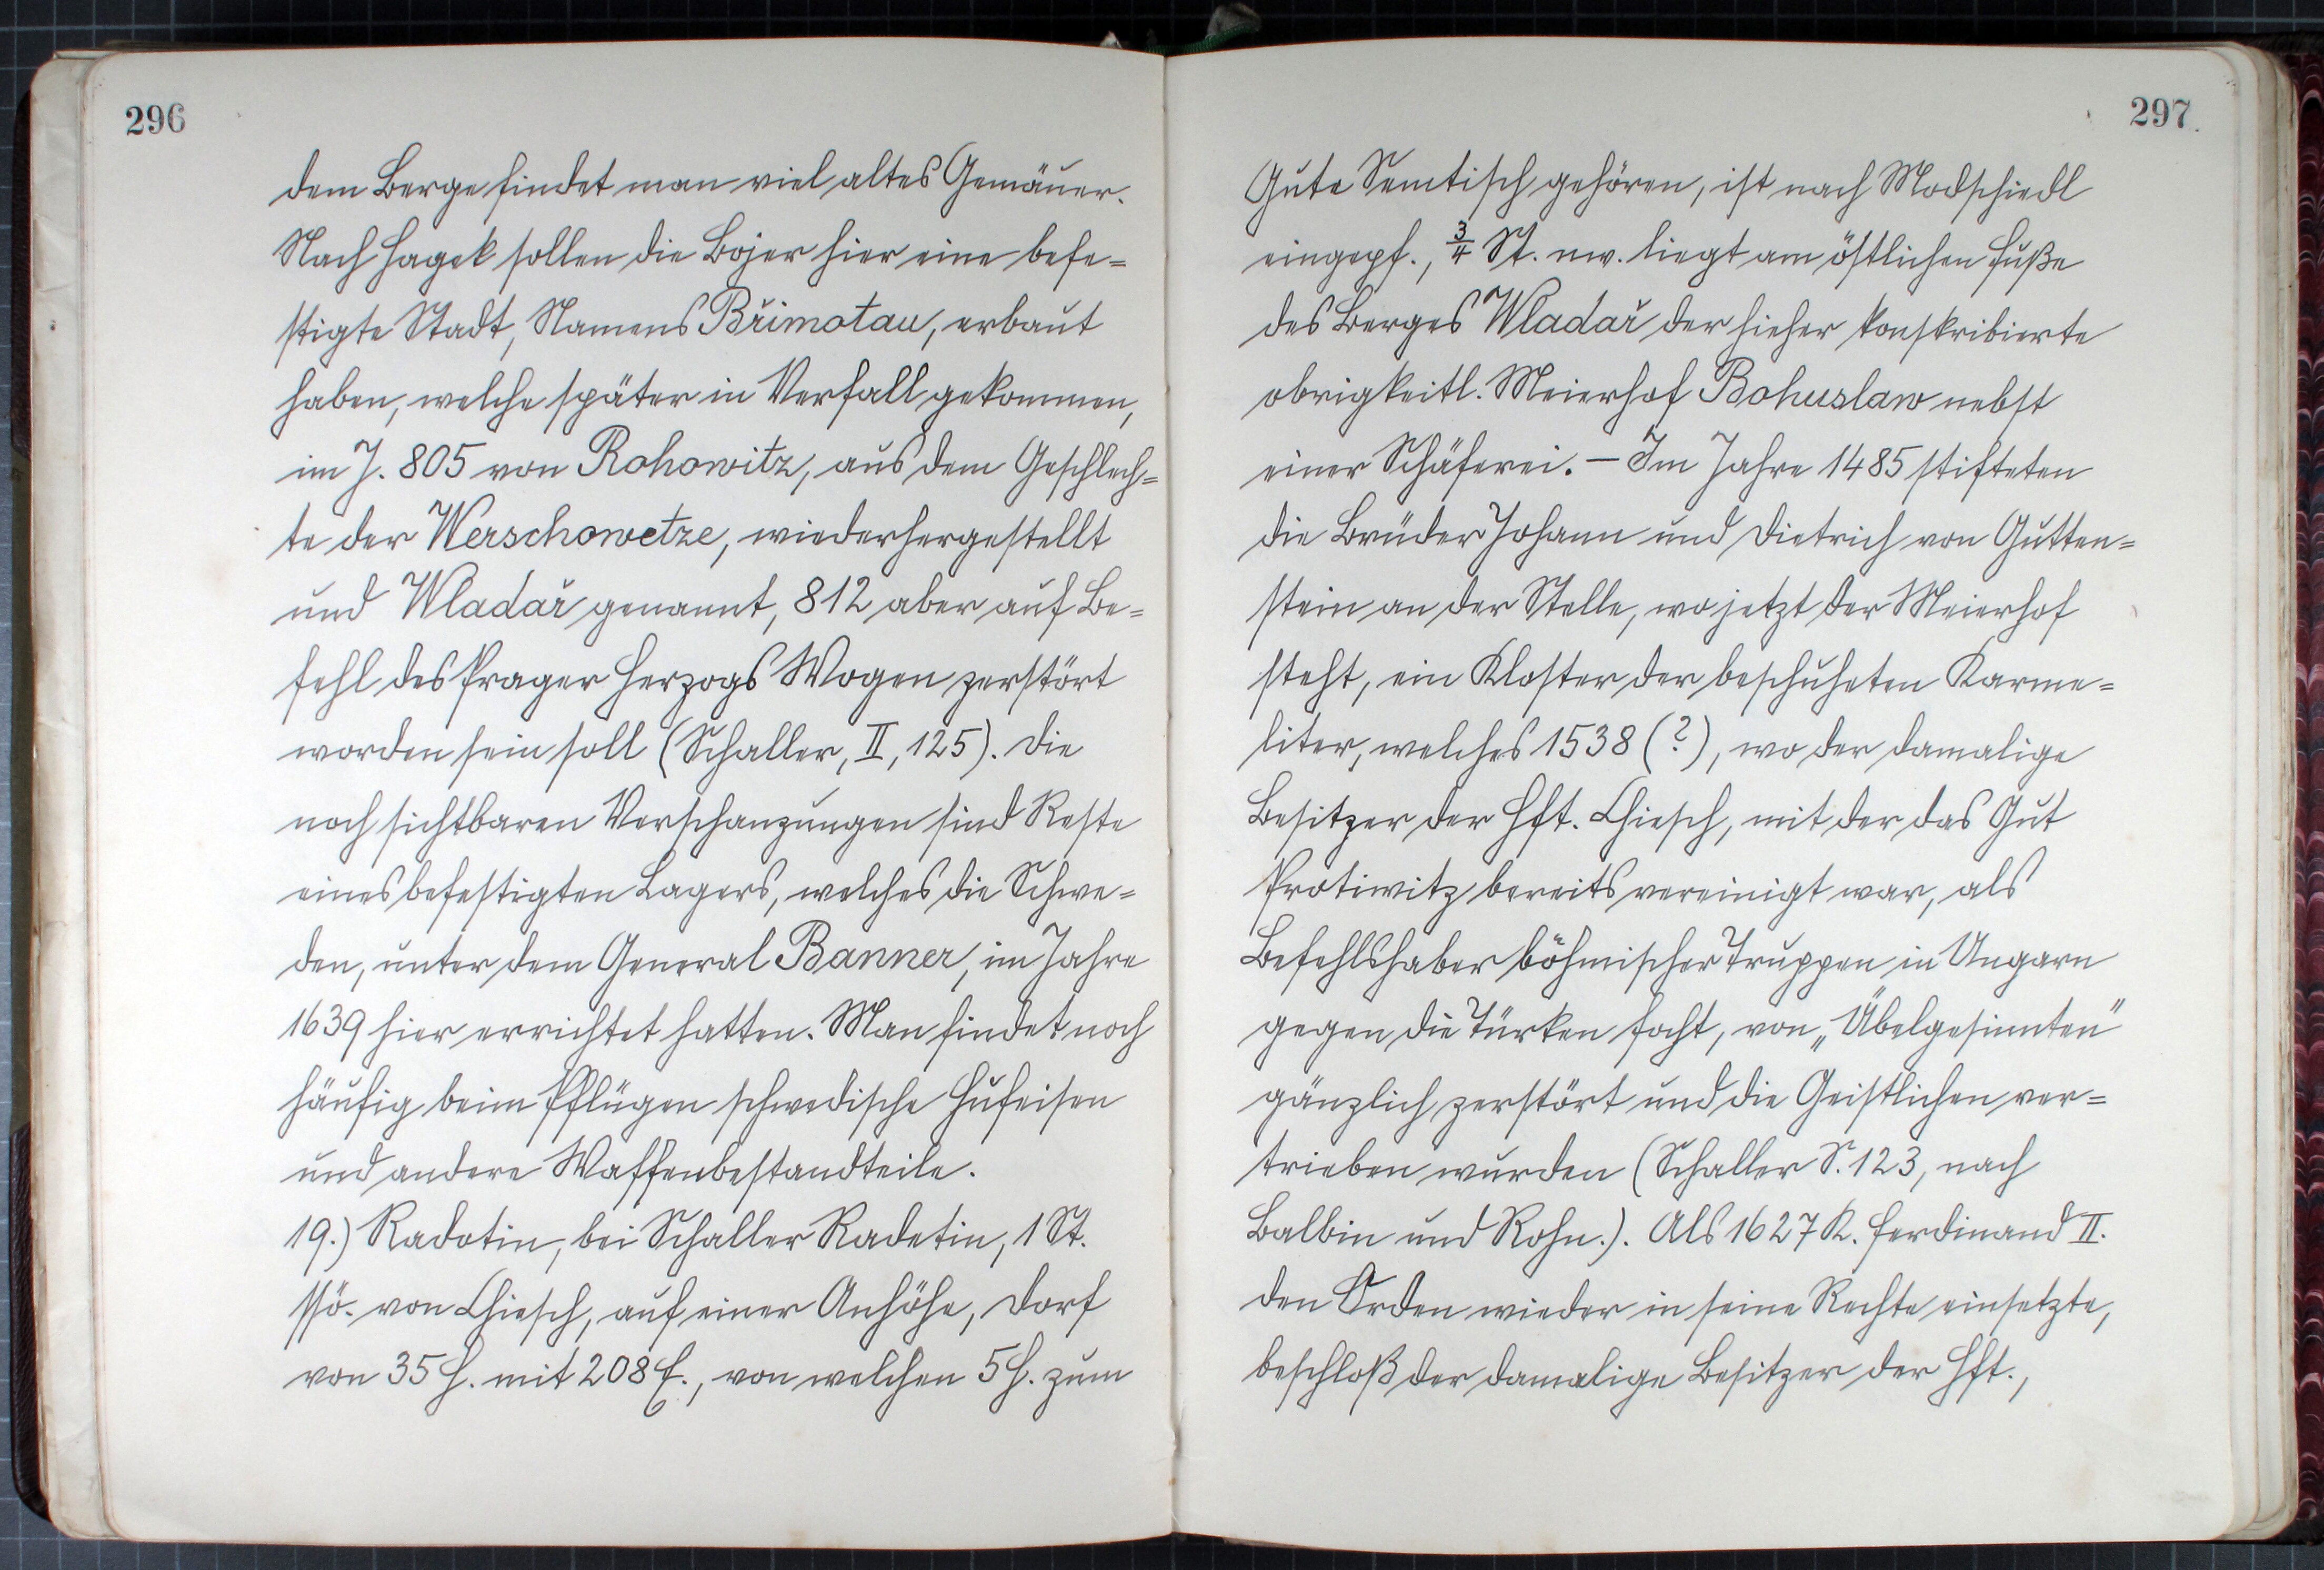 296
dem Berge findet man viel altes Gemäuer.
Nach Hagek sollen die Bojer hier eine befe=
stigte Stadt, Namens Břimotau, erbaut
haben, welche später in Verfall gekommen,
im J. 805 von Rohowitz, aus dem Geschlech=
te der Werschowetze, wiederhergestellt
und Wladař genannt, 812 aber auf Be=
fehl des Prager Herzogs Wogen zerstört
worden sein soll (Schaller, II, 125). Die
noch sichtbaren Verschanzungen sind Reste
eines befestigten Lagers, welches die Schwe=
den, unter dem General Banner, im Jahre
1639 hier errichtet hatten. Man findet noch
häufig beim Pflügen schwedische Hufeisen
und andere Waffenbestandteile.
19.) Radotin, bei Schaller Radetin, 1 St.
ssö. von Chiesch, auf einer Anhöhe, Dorf
von 35 H. mit 208 E., von welchen 5 H. zum
297
Gute Semtisch gehören, ist nach Modschiedl
eingepf., 3/4 St. nw. liegt am östlichen Fuße
des Berges Wladař der hieher konskribierte
obrigkeitl. Meierhof Bohuslaw nebst
einer Schäferei. – Im Jahre 1485 stifteten
die Brüder Johann und Dietrich von Gutten=
stein an der Stelle, wo jetzt der Meierhof
steht, ein Kloster der beschuheten Karme=
liter, welches 1538 (?), wo der damalige
Besitzer der Hft. Chiesch, mit der das Gut
Protiwitz bereits vereinigt war, als
Befehlshaber böhmischer Truppen in Ungarn
gegen die Türken focht, von „Übelgesinnten"
gänzlich zerstört und die Geistlichen ver=
trieben wurden (Schaller S. 123, nach
Balbin und Rohn.). Als 1627 K. Ferdinand II.
den Orden wieder in seine Rechte einsetzte,
beschloß der damalige Besitzer der Hft.,